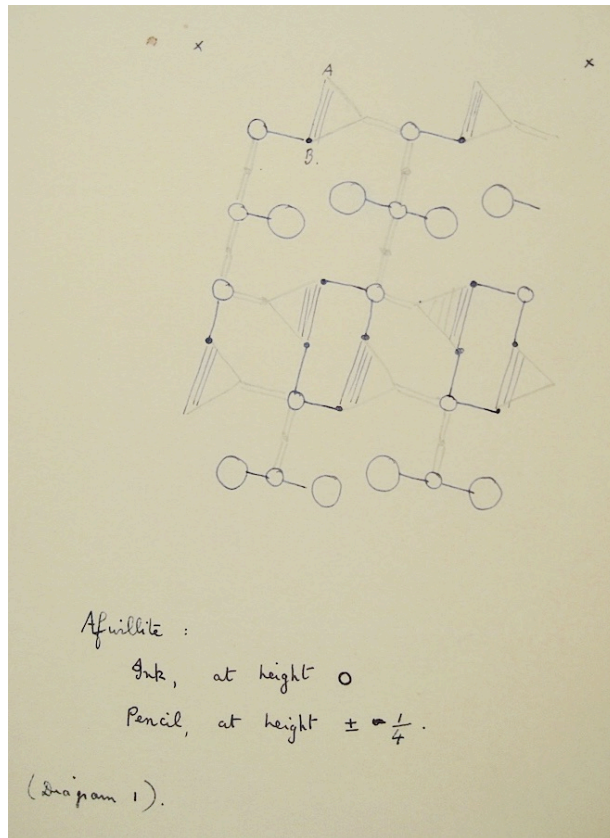 x
x
A
B.
Afwillite :
Ink, at height O
Pencil, at height ± ~ 1/4 .
(Diagram 1).